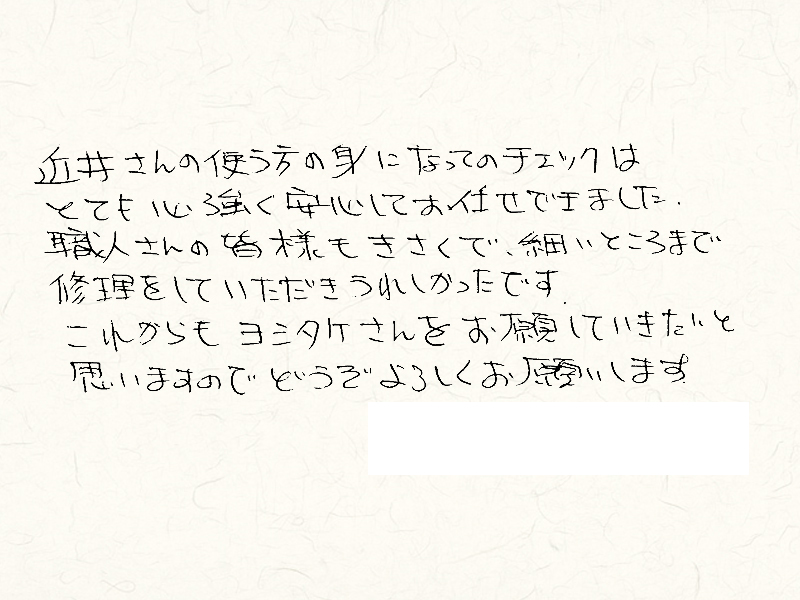 近井さんの使う方の身になってのチェックは
とても心強く安心してお任せできました.
職人さんの皆様もきさくで、細いところまで
修理をしていただきうれしかったです.
これからもヨシタケさんをお願していきたいと
思いますのでどうぞよろしくお願いします